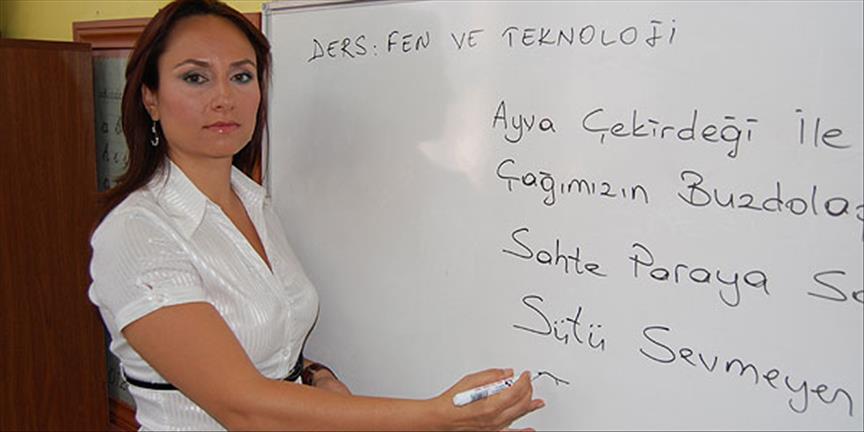 DERS: FEN VE TEKNOLOJİ
Ayva Çekirdeği İle
Çağımızın
Sahte Paraya
Sütü Sevmeyen